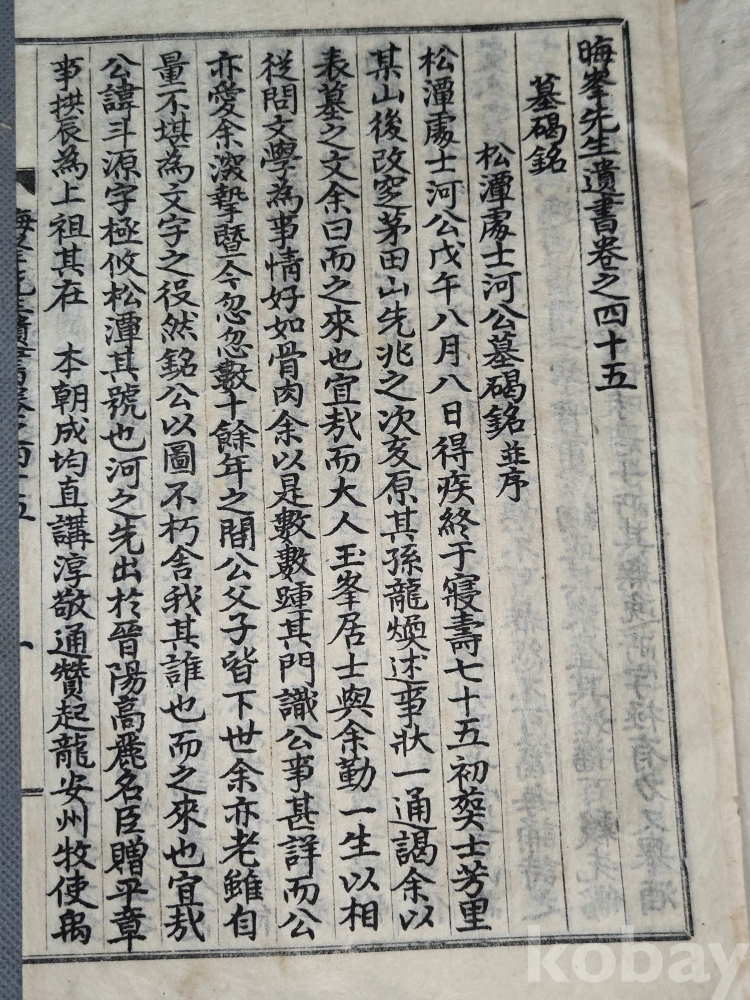 晦峯先生遺書卷之四十五
墓碣銘
松潭處士河公墓碣銘並序
松潭處士河公戊午八月八日得疾終于寢壽七十五初葬士芳里
某山後改窆茅田山先兆之次亥原其孫龍煥述事狀一通謁余以
表墓之文余曰而之來也宜哉而大人玉峯居士與余勤一生以相
從問文學為事情好如骨肉余以是數數踵其門識公事甚詳而公
亦愛余深摯曁今忽忽數十餘年之間公父子皆下世余亦老雖自
量不堪為文字之役然銘公以圖不朽舍我其誰也而之來也宜哉
公諱斗源字極攸松潭其號也河之先出於晉陽高麗名臣贈平章
事拱辰為上祖其在 本朝成均直講淳敬通贊起龍安州牧使禹
晦峯先生遺書卷之四十五
一
kobay